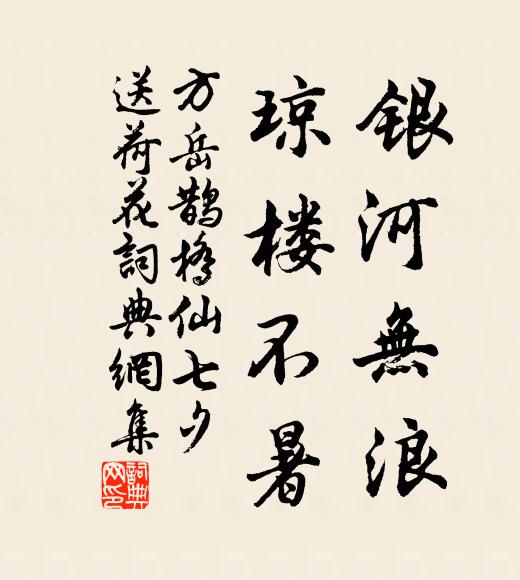 银河無浪
琼楼不暑
方岳鹊橋仙七夕
送荷花詞典網集
詞典网印